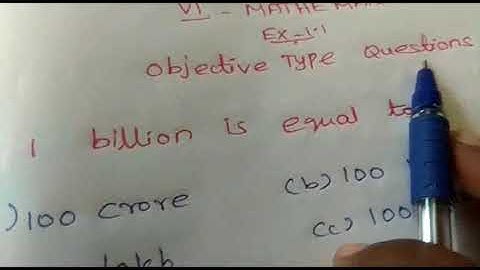 VI - MATHEMA
Ex-1.1
Objective Type Questions
1 billion is equal to
) 100 crore
(b) 100
(c) 100
lakh